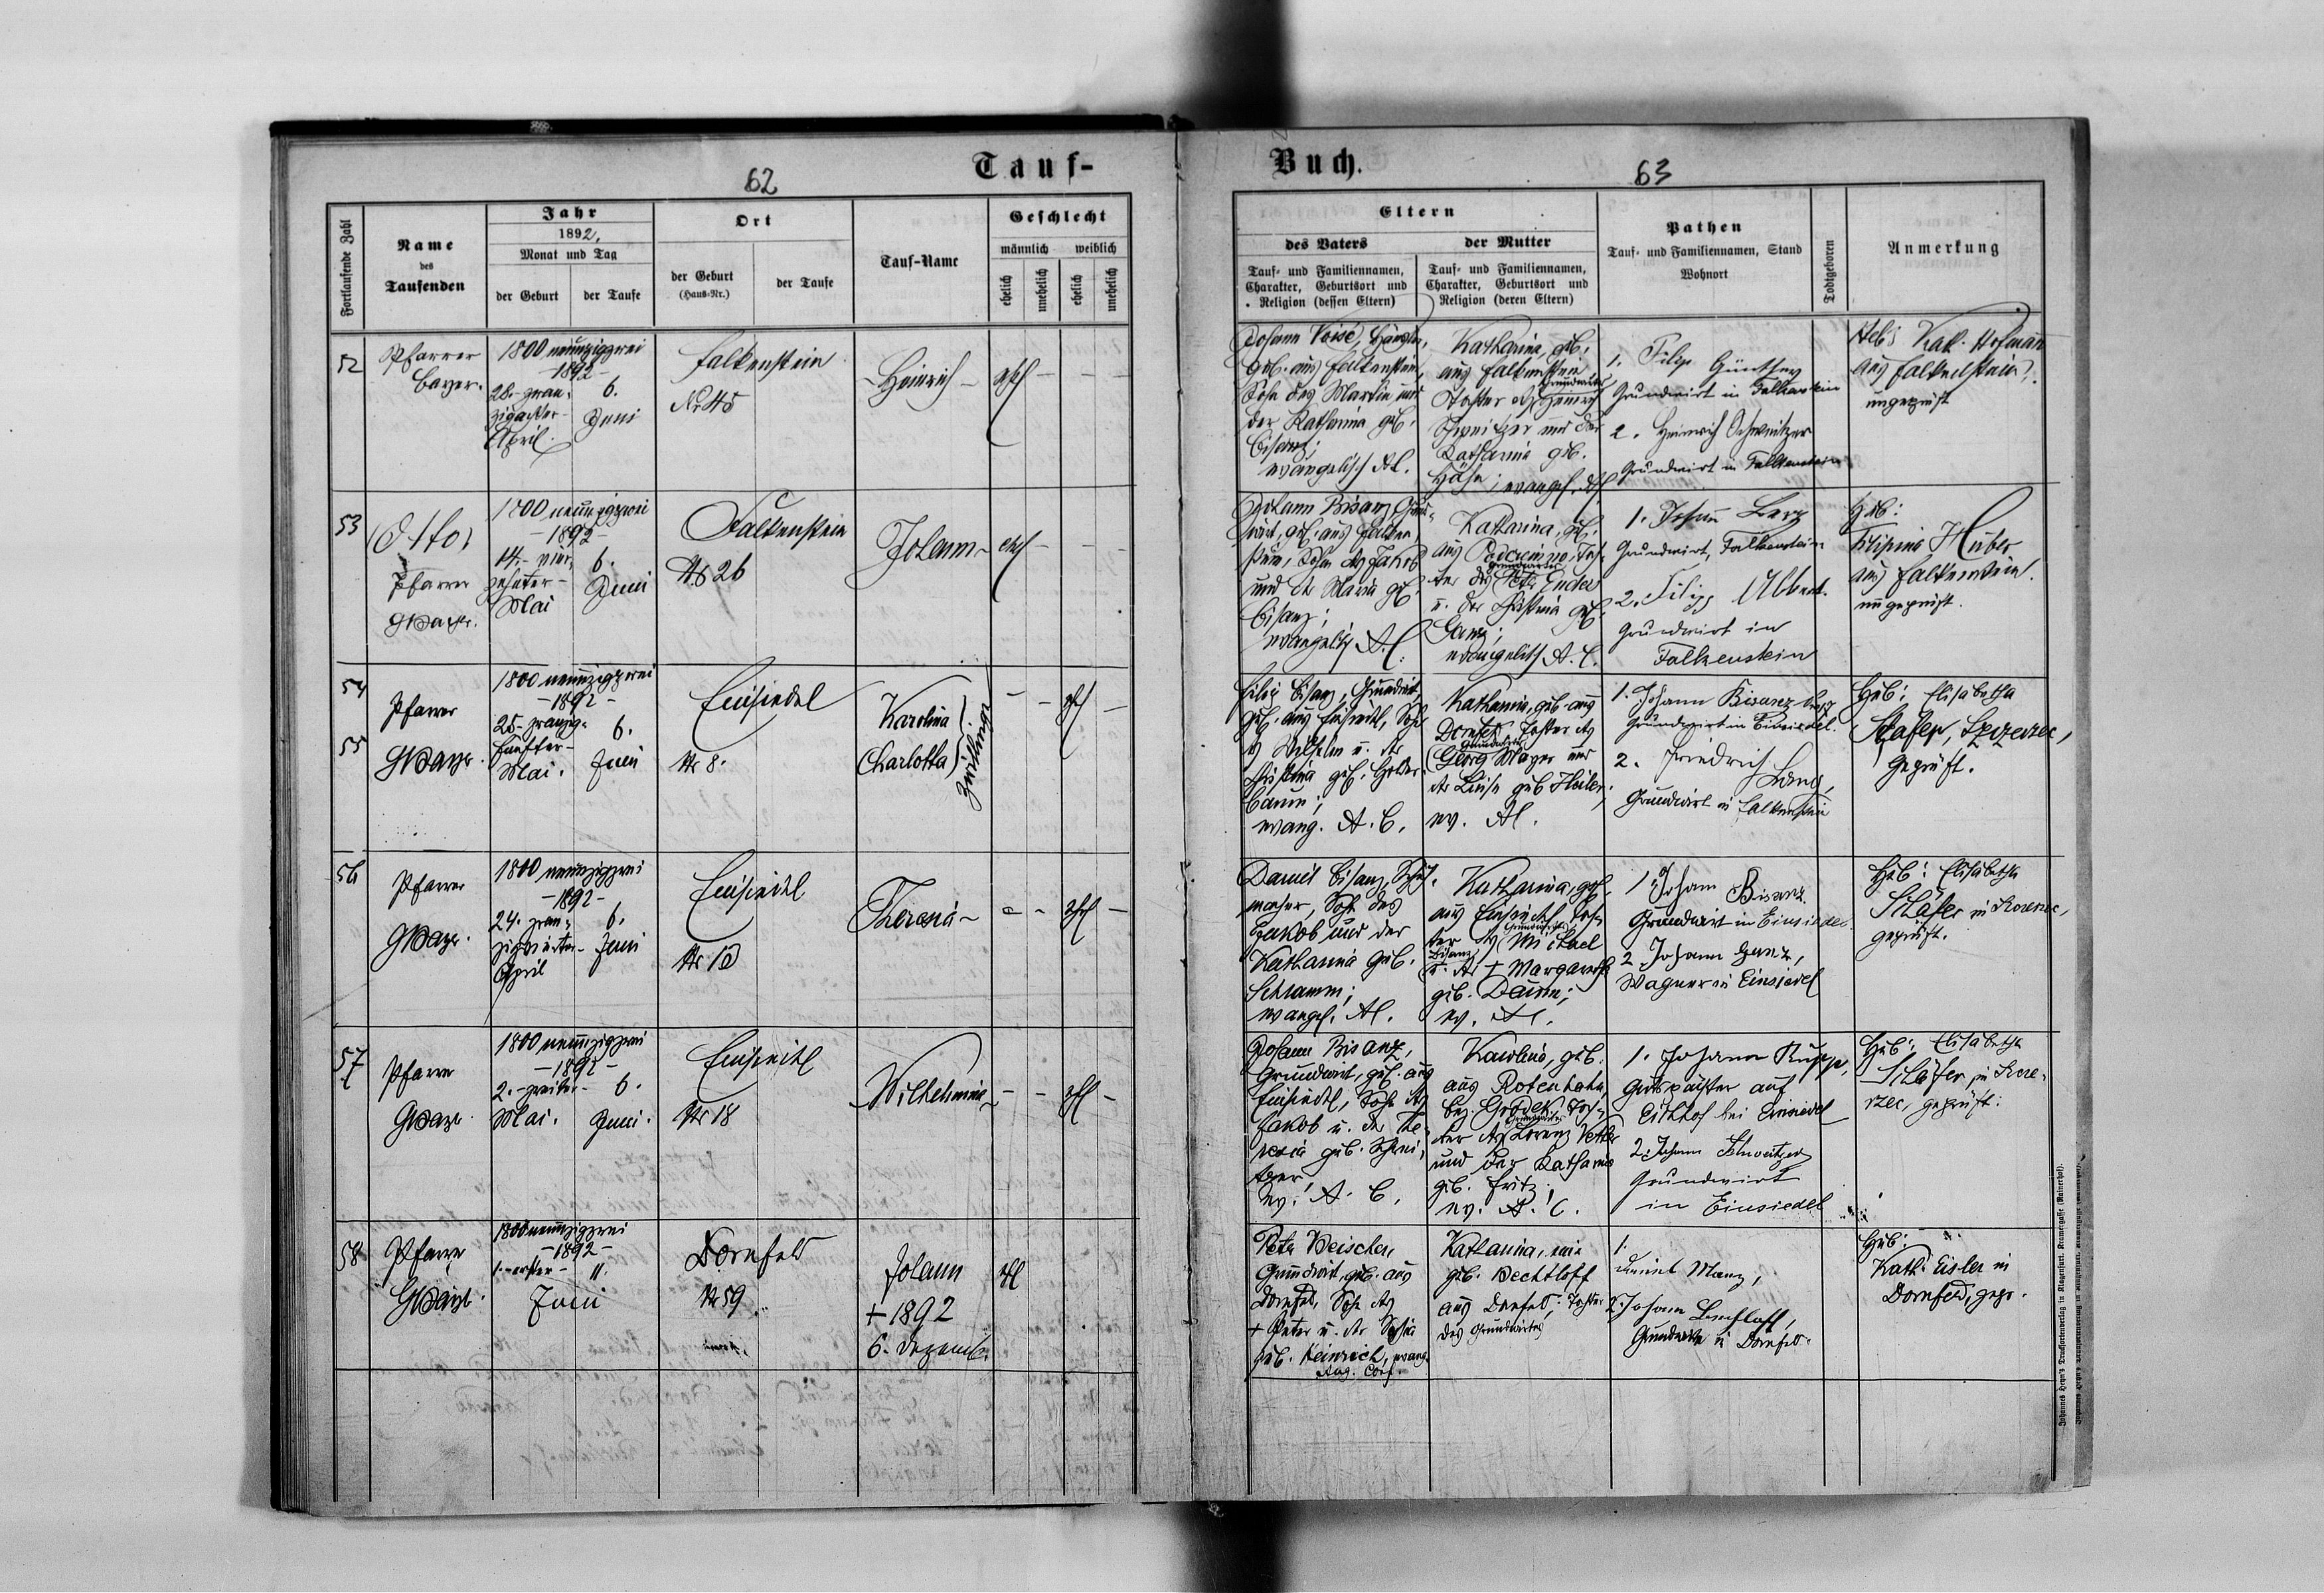 62
Tauf-
Fortlaufende Zahl
Name
des
Taufenden
Jahr
1892.
Monat und Tag
der Geburt
der Taufe
Ort
der Geburt
(Haus-Nr.)
der Taufe
Tauf-Name
Geschlecht
männlich
weiblich
ehelich
unehelich
ehelich
unehelich
52
Pfarrer
Bayer.
1800 neunzigzwei
-1892-
28.- zwan-
zigachter-
April.
6.
Juni
Falkenstein
Nr 45
-Heinrich-
ehel
53
Pfarrer
1800 neunzigzwei
-1892-
14.- vier-
zehnter-
Mai
6.
Juni
Falkenstein
Nr 26
Johann-
ehel
54
55
Pfarrer
1800 neunzigzwei
-1892-
25.- zwanzig-
fünfter-
Mai.
6.
Juni
Einsiedel
Nr 8.
Karolina
Charlotta
Zwillinge
ehel
56
Pfarrer
1800 neunzigzwei
-1892-
24. zwan-
zigvierter-
April
6.
Juni
Einsiedel
Theresia-
ehel
57
Pfarrer
1800 neunzigzwei
-1892-
2.- zweiter-
Mai.
6.
Juni.
Einsiedel
Nr 18
Wilhelmine-
ehel
58
Pfarrer
1800 neunzigzwei
-1892-
1.- erster-
11.
Juni
Dornfeld
Nr 59
Johann
+ 1892
6. Dezemb.
ehel
Buch.
63
Eltern
des Vaters
der Mutter
Tauf- und Familiennamen,
Charakter, Geburtsort und
Religion (dessen Eltern)
Tauf- und Familiennamen,
Charakter, Geburtsort und
Religion (deren Eltern)
Pathen
Tauf- und Familiennamen, Stand
Wohnort
Todtgeboren
Anmerkung
Johann
geb. aus Falkenstein,
Sohn des Martin und
der Katharina geb.
Bisanz;
evangelisch AC.
Katharina, geb.
aus Falkenstein
Grundwirth
Tochter des Heinrich
Schweitzer und der
Katharina geb.
evangel. AC
1. Filip Günther
Grundwirt in Falkenstein
2. Heinrich Schweitzer
Grundwirt in Falkenstein
Heb: Kath. Hofmann
aus Falkenstein.
ungeprüft
Johann Bisanz, Grund-
wirt, geb. aus Falken-
stein, Sohn des Jakob
und der Maria geb.
Bisanz;
evangelisch A.C.
Katharina, geb.
aus Toch-
ter des Enders
u. der Christina geb.
Ganz;
evangelisch A.C.
1. Johann
Grundwirt, Falkenstein
2. Filipp Albert.
Grundwirt in
Falkenstein
Heb:
Huber
aus Falkenstein.
ungeprüft.
Filip Bisanz, Grundwirt,
geb. aus Einsiedel, Sohn
des Wilhelm u. der
Christina geb. Hollen-
baum;
evang. A.C.
Katharina, geb. aus
Dornfeld Tochter des
Grundwirts
Georg Mayer und
der Luise geb.
ev. AC.
1. Johann Bisanz
Grundwirt in Einsiedel.
2. Friedrich
Lang,
Grundwirt in Falkenstein
Heb: Elisabetha
Schäfer, Szczerzec,
Geprüft.
Daniel Bisanz, Schuh-
macher, Sohn des
Jakob und der
Katharina geb.
Schramm;
evangel. AC.
Katharina, geb.
aus Einsiedel, Toch-
Grundwirths
ter des Michael
Bisanz
u. der + Margaretha
geb. Daum;
ev. AC.
1. Johann Bisanz.
Grundwirt in Einsiedel
2. Johann Ganz,
Wagner in Einsiedel
Heb: Elisabetha
Schäfer in
geprüft.
Johann Bisanz,
Grundwirt, geb. aus
Einsiedel, Sohn des
Jakob u. der The-
resia geb. Schwei-
tzer,
ev. A.C.
Karolina, geb.
aus Rotenhahn,
Bez. Grodek, Toch-
ter des Lorenz Vetter
und der Katharina
geb. Fritz;
ev. A.C.
1. Johann Rupp,
Gutspächter auf
bei Einsiedel
2. Johann Schweitzer
Grundwirt
in Einsiedel
Heb: Elisabetha
Schäfer in
rzec, geprüft.
Peter Weischer,
Grundwirt, geb. aus
Dornfeld, Sohn des
+ Peter u. der Sofia
geb. Heinrich, evang.
Aug. Conf.
Katharina,
geb. Bechtloff
aus Dornfeld; Tochter
des Grundwirtes
1.
Daniel Manz,
2. Johann Bechtloff,
Grundwirte in Dornfeld.
Heb:
Kath. Eisler in
Dornfeld, gepr.